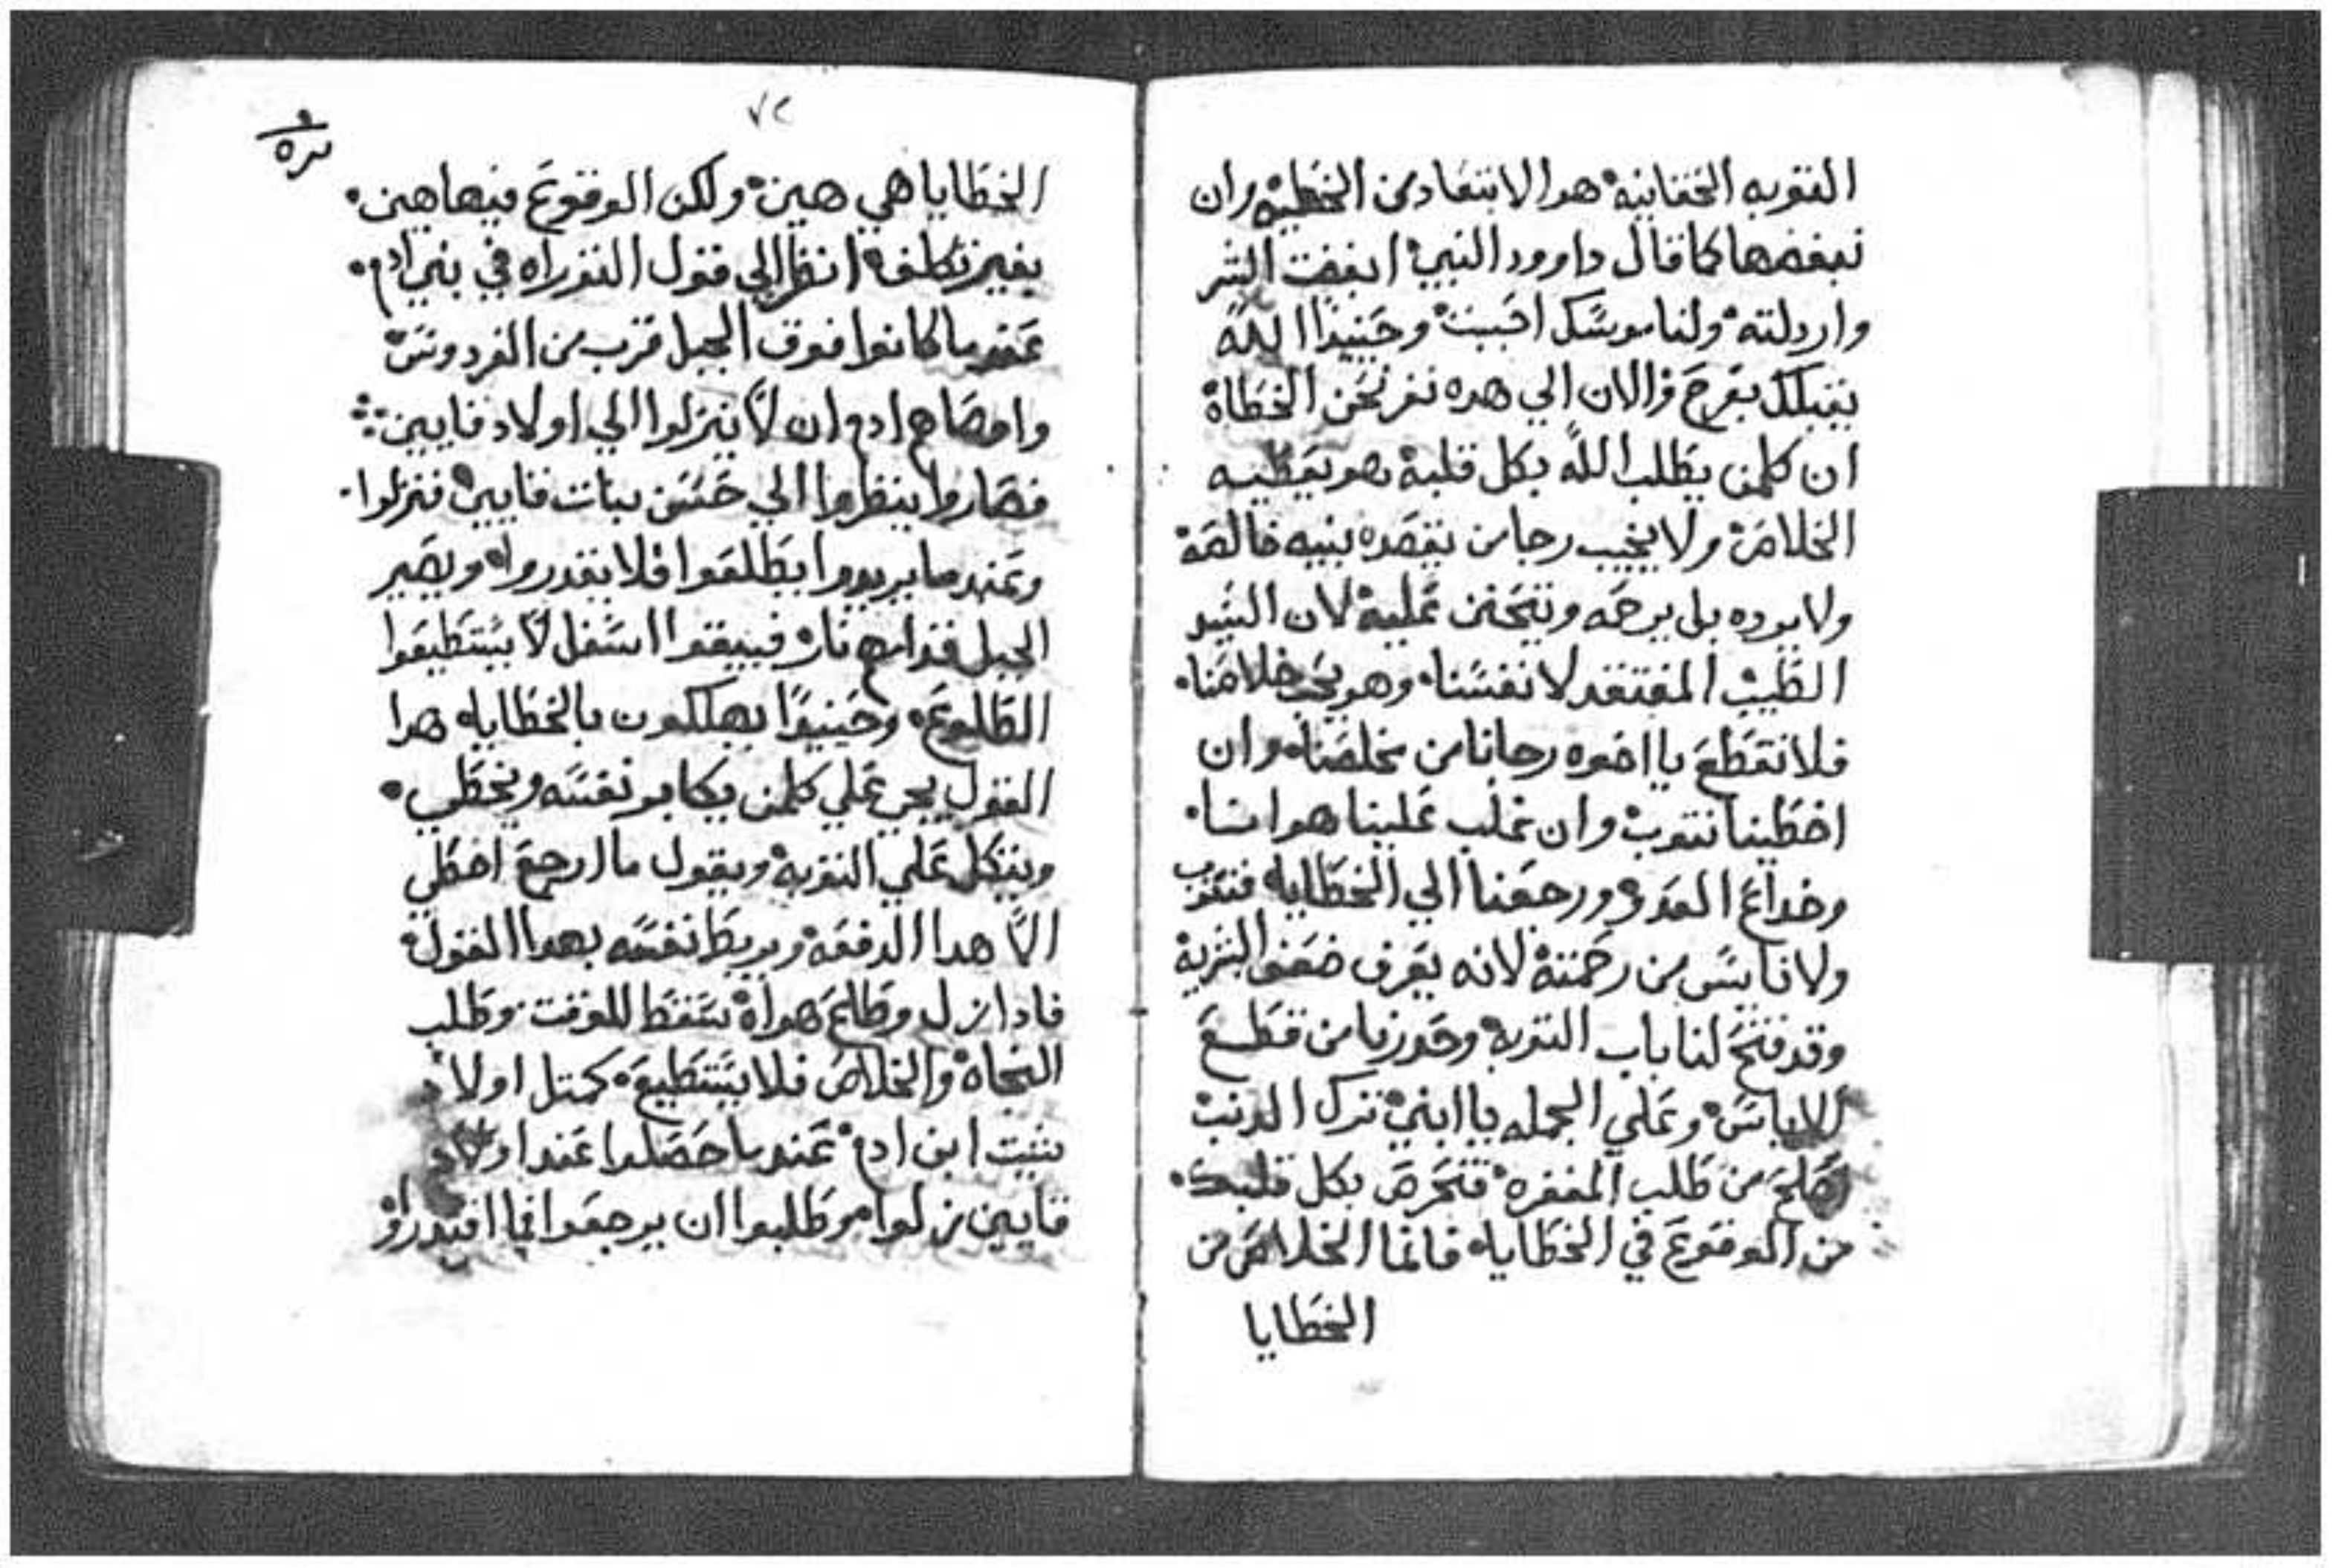 التوبه الحقانيه هو الابتعاد من الخطيه وان
نبغضها كما قال داوود النبي ابغضت الشر
واردلته ولناموسك احببت وحنيدا الله
يتقبلك بفرح والان الي هده نفر نحن الخطاة
ان كلمن يطلب الله بكل قلبه هو يعطيه
الخلاص ولا يخيب رجا من يقصده بنيه خالصه
ولا يرده بل يرحمه ويتحنن عليه لان السيد
الطبيب المفتقد لانفسنا وهو يحب خلاصنا
فلا نقطع يا اخوه رجانا من مخلصنا وان
اخطينا نتوب وان غلب علينا هوانا
وخداع العدو ورجعنا الي الخطايا فنتوب
ولا ناييس من رحمته لانه يعرف ضعف البشريه
وقد فتح لنا باب التوبه وحدرنا من قطع
الاياس وعلي الجمله يا ابني ترك الدنب
اصلح من طلب المغفره فتحرص بكل قلبك
من الوقوع في الخطايا فانما الخلاص من
الخطايا
٧٢
الخطايا هي هين ولكن الوقوع فيها هين
بغير تكلف انظر الي قول التوراه في بني ادم
عندما كانوا فوق الجبل قرب من الفردوس
واوصاهم ادم ان لا ينزلوا الي اولاد قايين
فصاروا ينظروا الي حسن بنات قايين فنزلوا
وعندما يريدوا يطلعوا فلا يقدروا ويصير
الجبل قدامهم نار فيبقوا اسفل لا يستطيعوا
الطلوع وحينيدا يهلكون بالخطايا هدا
القول يجي علي كلمن يكابر نفسه ويخطي
ويتكل علي التوبه ويقول ما ارجع اخطي
الا هدا الدفعه ويربط نفسه بهدا القول
فادا نزل وطاع هواه سقط للوقت وطلب
النجاه والخلاص فلا يستطيع كمتل اولاد
شيت ابن ادم عندما حصلوا عند اولاد
قايين نزلوا وطلبوا ان يرجعوا فما اقتدروا